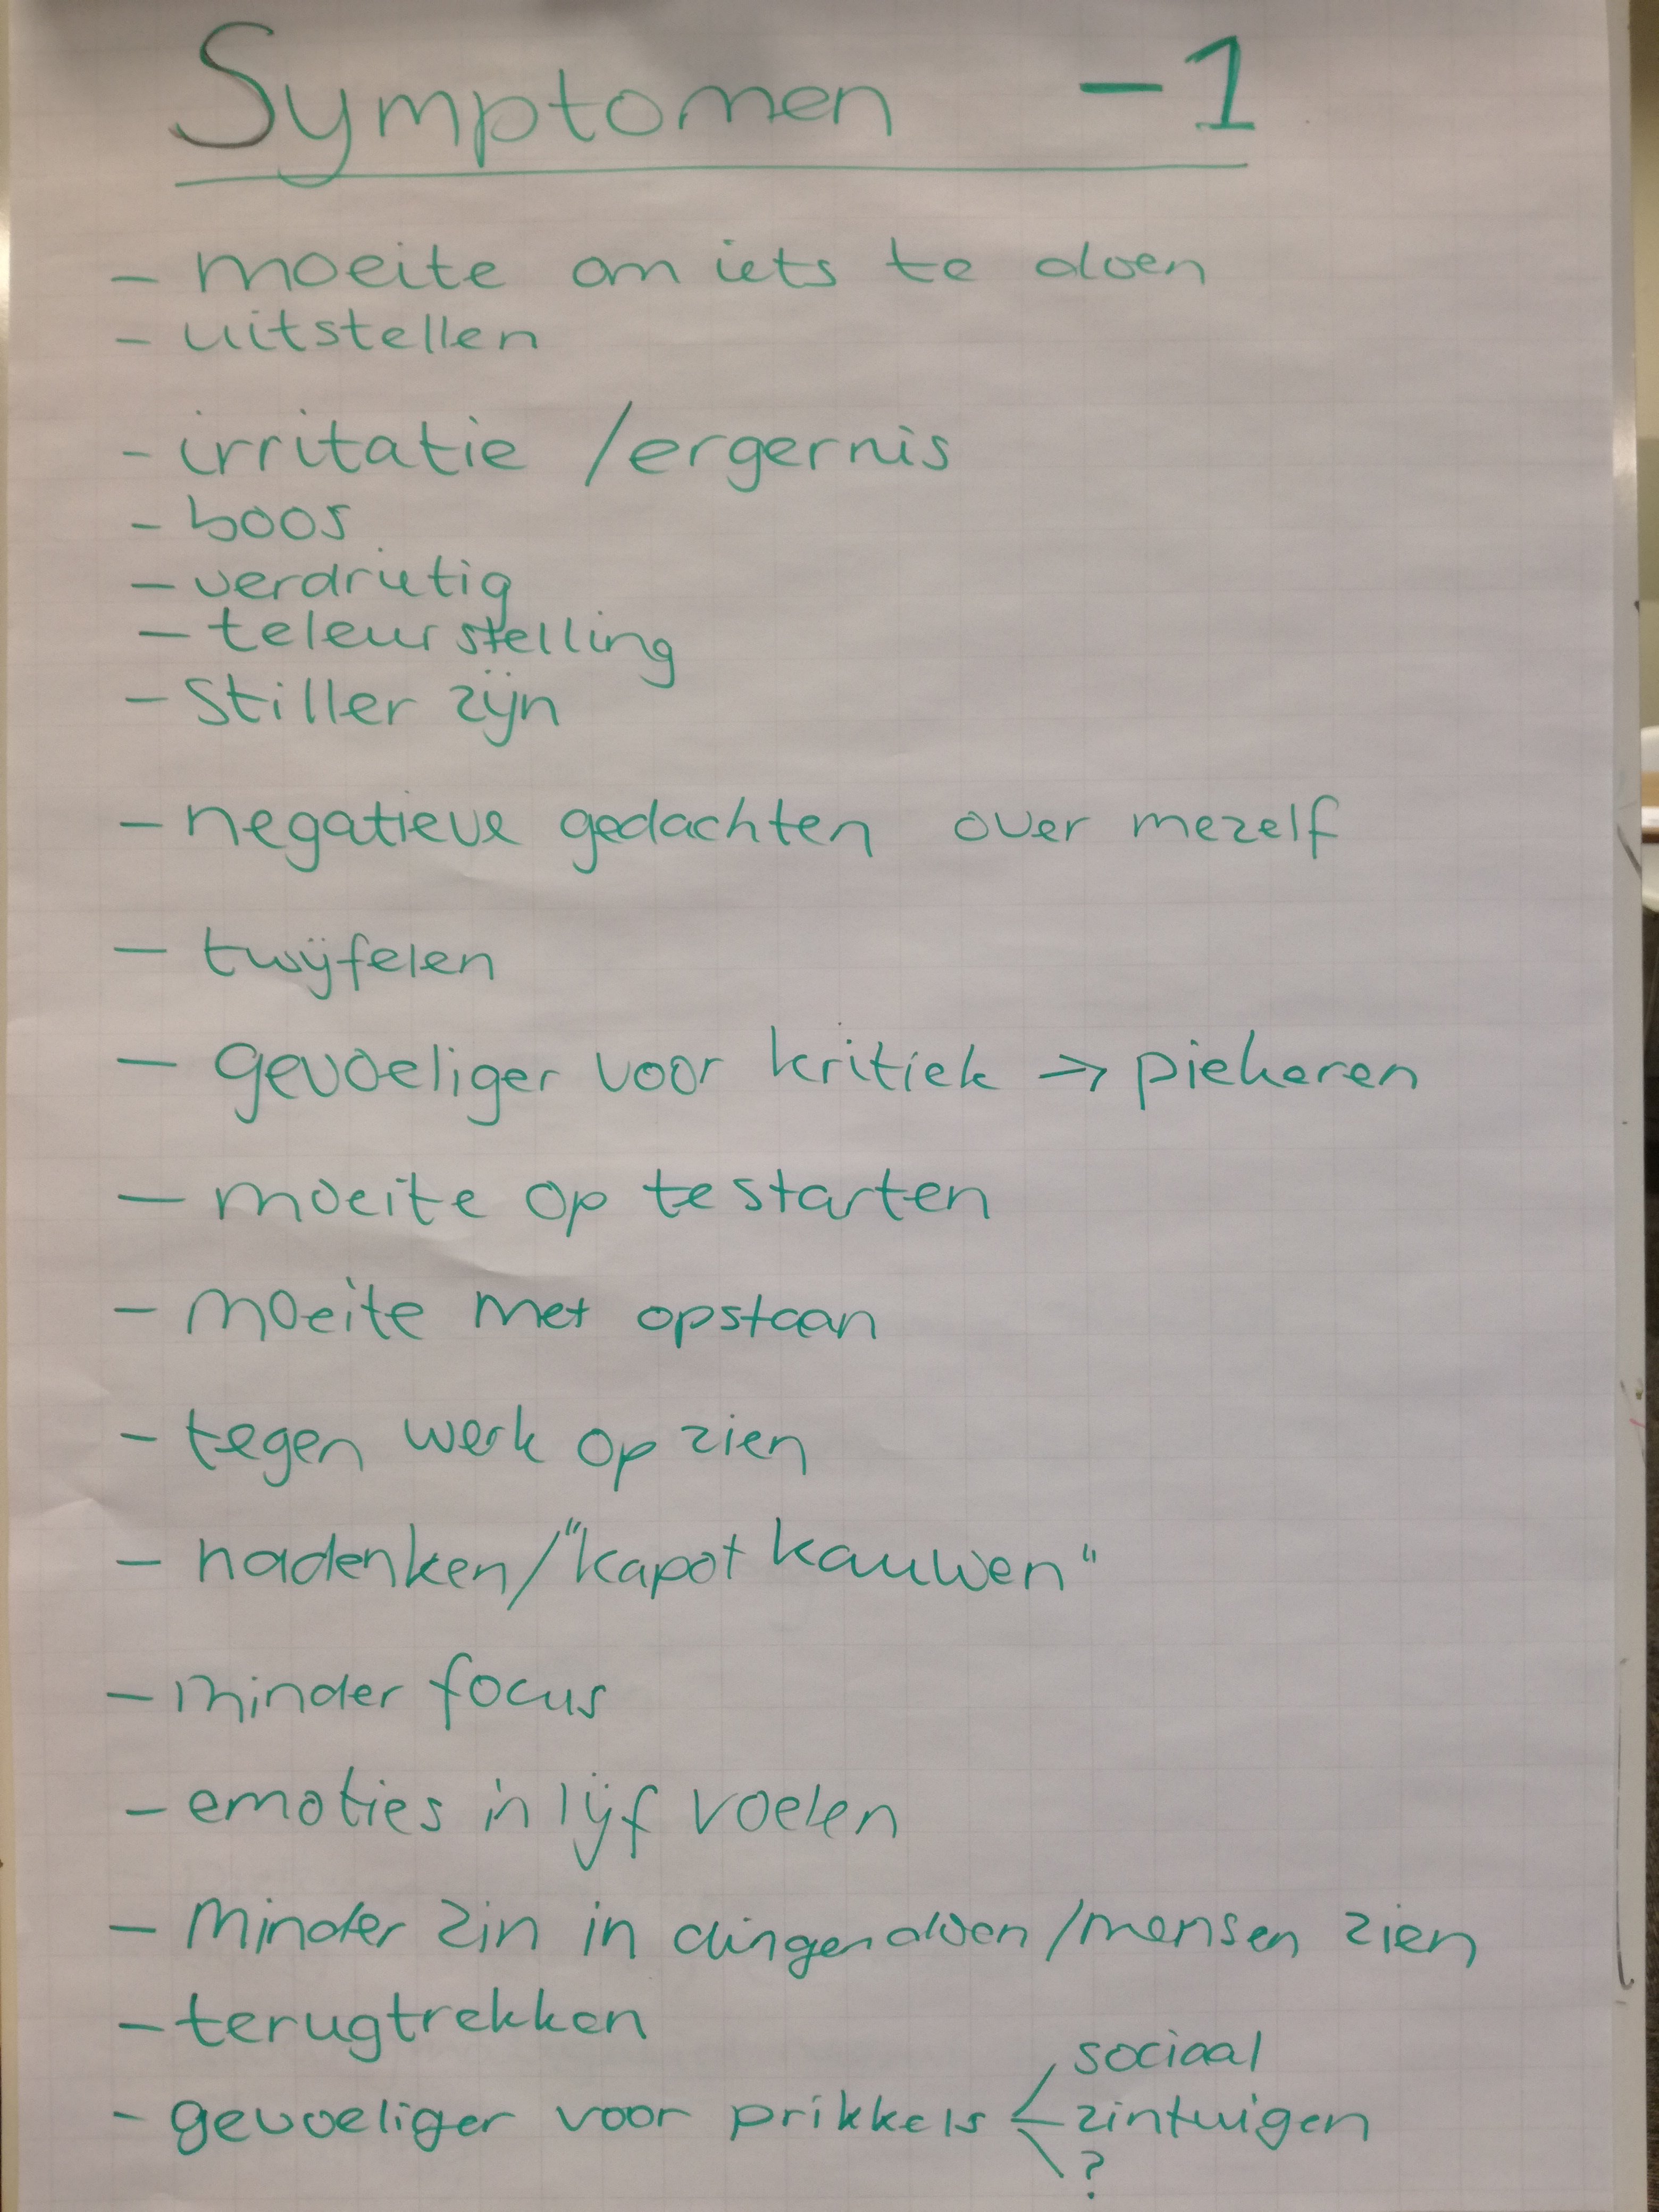 Symptomen -1
- moeite om iets te doen
- uitstellen
- irritatie /ergernis
- boos
- verdrietig
- teleurstelling
- stiller zijn
- negatieve gedachten over mezelf
- twijfelen
- gevoeliger voor kritiek → piekeren
- moeite op te starten
- moeite met opstaan
- tegen werk op zien
- nadenken/"kapot kauwen"
- minder focus
- emoties in lijf voelen
- minder zin in dingen doen /mensen zien
- terugtrekken
- gevoeliger voor prikkels
sociaal
zintuigen
?